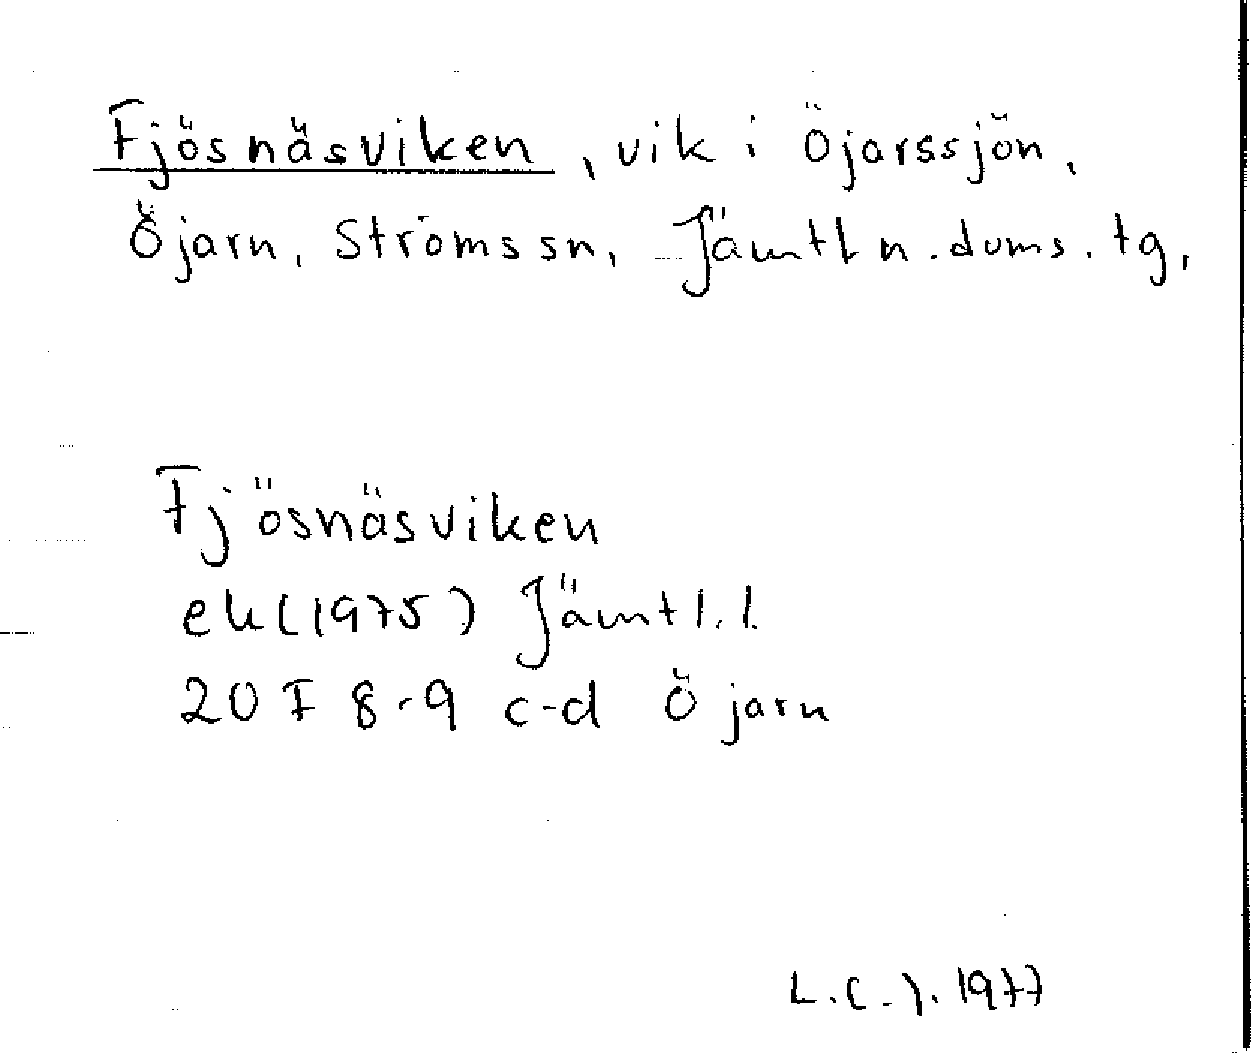 Fjösnäsviken, vik i Öjarssjön,
Öjarn, Ströms sn, Jämtl n. doms. tg,
Fjösnäsviken
ek (1975) Jämtl. l.
20 F 8-9 c-d Öjarn
L.C.J. 1977